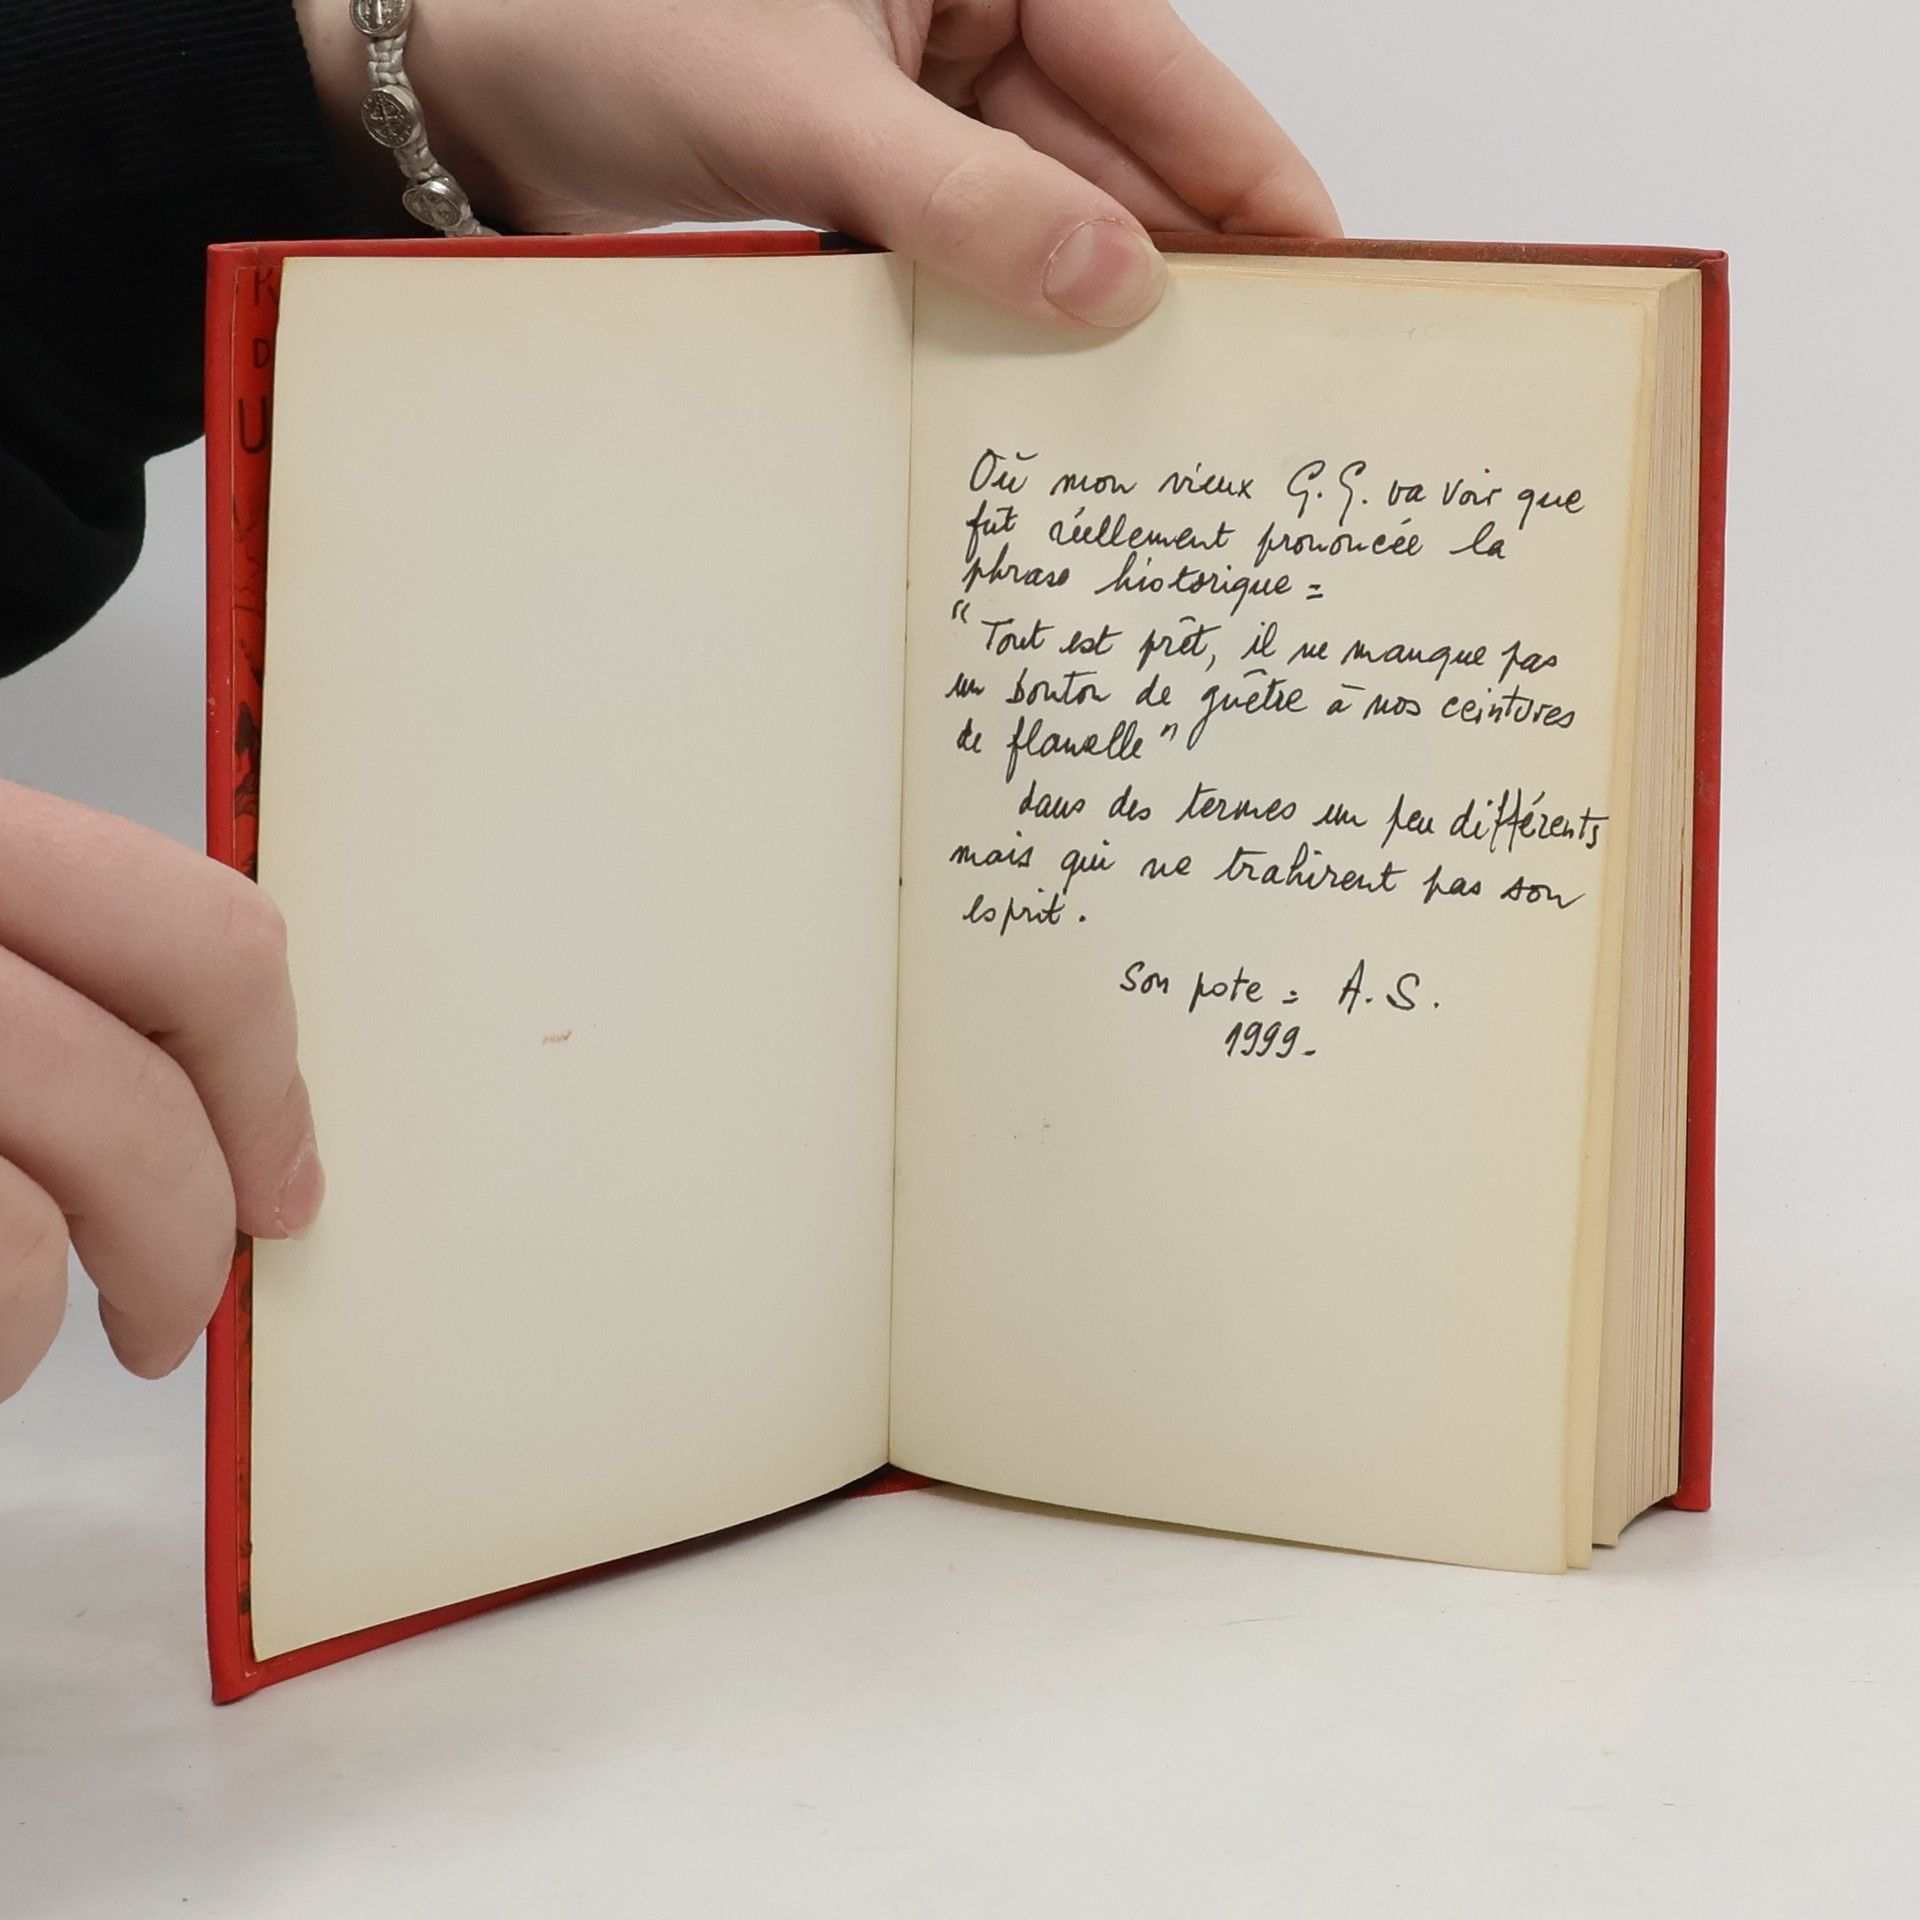 K
D
U
Où mon vieux G. G. va voir que
fut réellement prononcée la
phrase historique =
"Tout est prêt, il ne manque pas
un bouton de guêtre à nos ceintures
de flanelle"
dans des termes un peu différents
mais qui ne trahirent pas son
esprit.
Son pote = A. S.
1999-